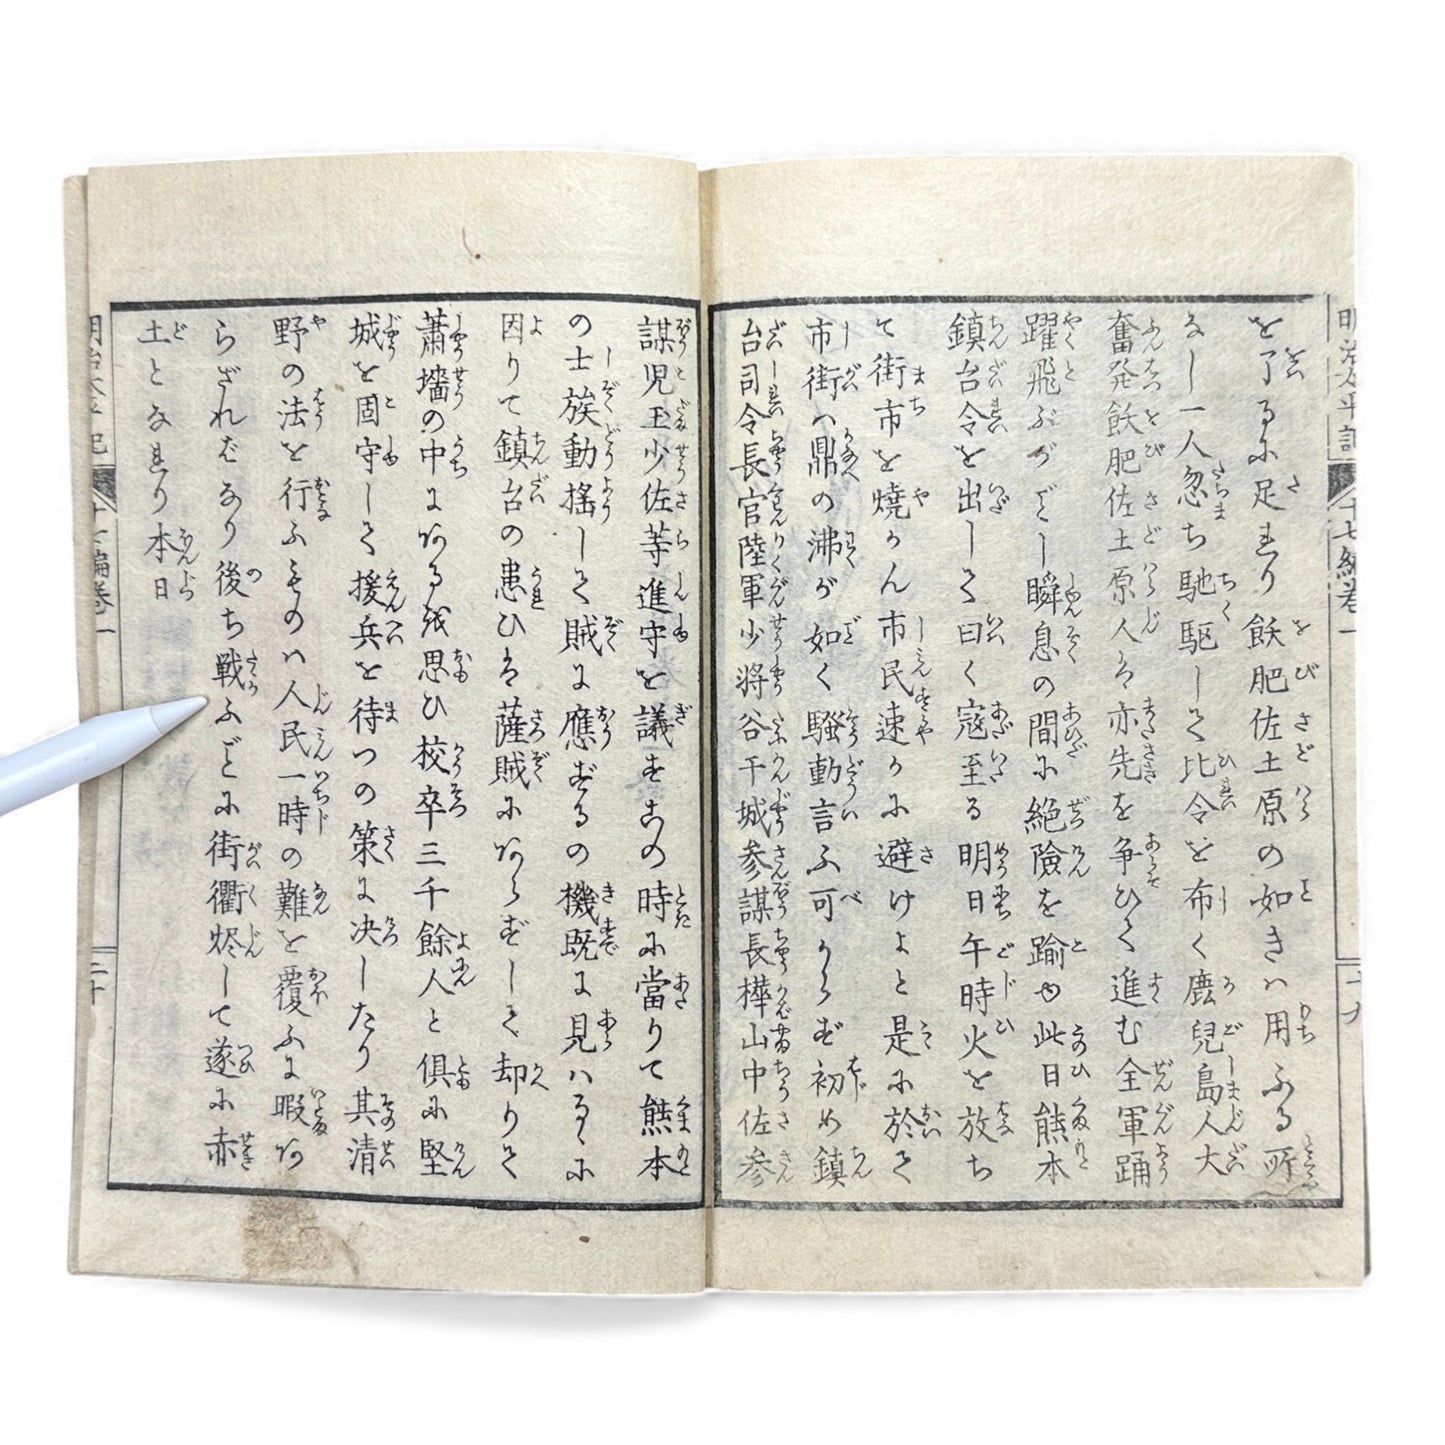 明治太平記 十七編巻一 十九
を了るに足れり飫肥佐土原の如きハ用ふる所
なし一人忽ち馳駆して比令を布く鹿兒島人大
奮発飫肥佐土原人は亦先を争ひて進む全軍踊
躍飛ぶがごとし瞬息の間に絶險を踰ゆ此日熊本
鎮台令を出して曰く寇至る明日午時火を放ち
て街市を焼かん市民速かに避けよと是に於て
市街ハ鼎の沸が如く騒動言ふ可からず初め鎮
台司令長官陸軍少将谷干城参謀長樺山中佐参
謀児玉少佐等進守を議す此の時に當りて熊本
の士族動揺して賊に應ずるの機既に見ハるゝに
因りて鎮台の患ひは薩賊にあらずして却りて
蕭墻の中にあるを思ひ校卒三千餘人と倶に堅
城を固守して援兵を待つの策に决したり其清
野の法を行ふものハ人民一時の難を覆ふに暇あ
らざればなり後ち戦ふごとに街衢烬して遂に赤
土となれり本日
明治太平記 十七編巻一 二十